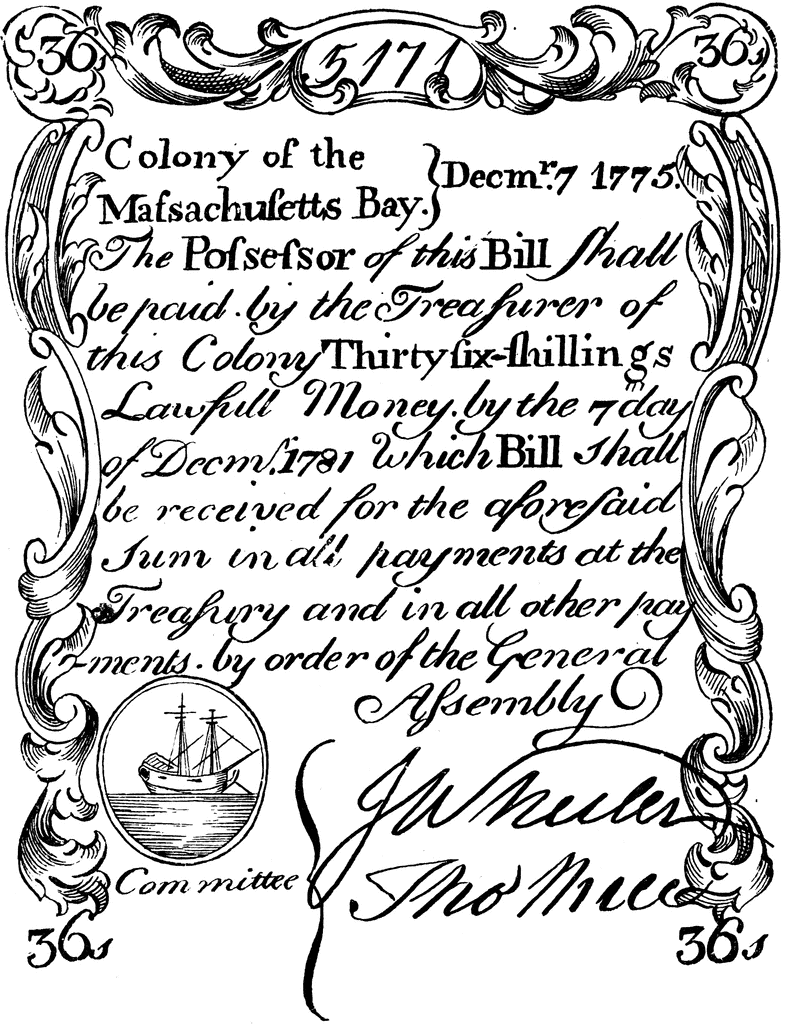 36s 5171 36s
Colony of the
Maſsachuſetts Bay. } Decmr. 7 1775.
The Poſseſsor of this Bill ſhall
be paid . by the Treaſurer of
this Colony Thirty ſix-ſhillings
Lawfull Money . by the 7th day
of Decmr. 1781 Which Bill ſhall
be received for the aforeſaid
Sum in all payments at the
Treaſury and in all other pay
-ments . by order of the General
Aſsembly
J Wheeler
Committee
Tho
36s 36s